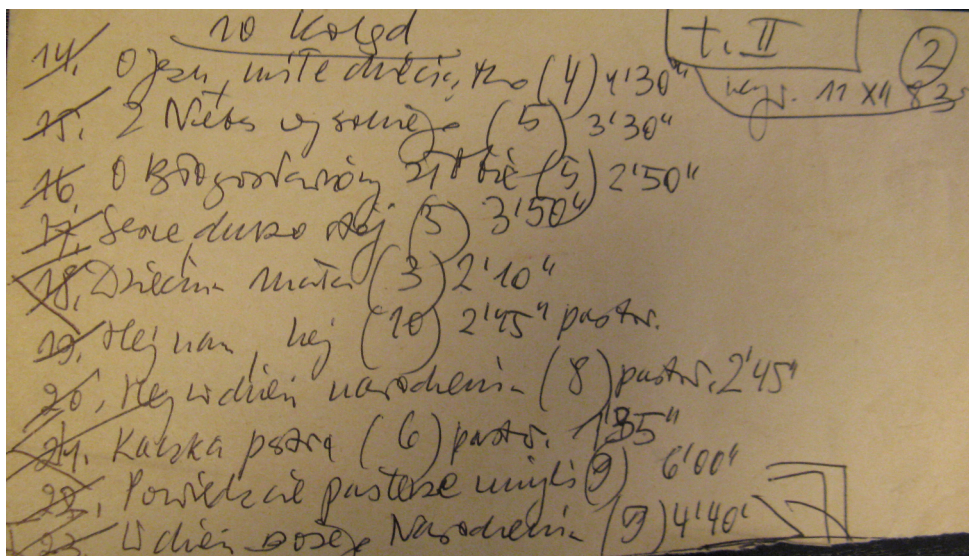 10 Kolęd
t. II
2
11 XII 83
14. O Jezu, miłe dzieciątko (4) 4'30"
15. Z Nieba wysokiego (5) 3'30"
16. O Błogosławiony (5) 2'50"
17. duszo (5) 3'50"
18. Dziecina mała (3) 2'10"
19. Hej nam, hej (10) 2'45" past.
20. Hej w dzień narodzenia (8) past. 2'45"
21. Kaczka pstra (6) past. 1'35"
22. Powiedzcie pasterze mili (9) 6'00"
23. W dzień Bożego Narodzenia (9) 4'40"